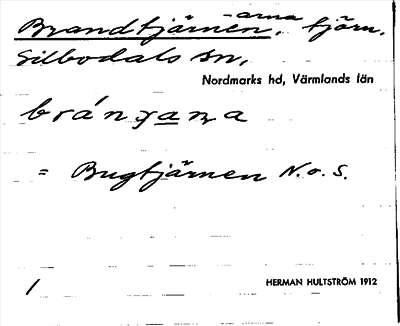 Brandtjärnen, -arna tjärn.
Silbodals sn,
Nordmarks hd, Värmlands län
= Bugtjärnen N. o. S.
1
HERMAN HULTSTRÖM 1912